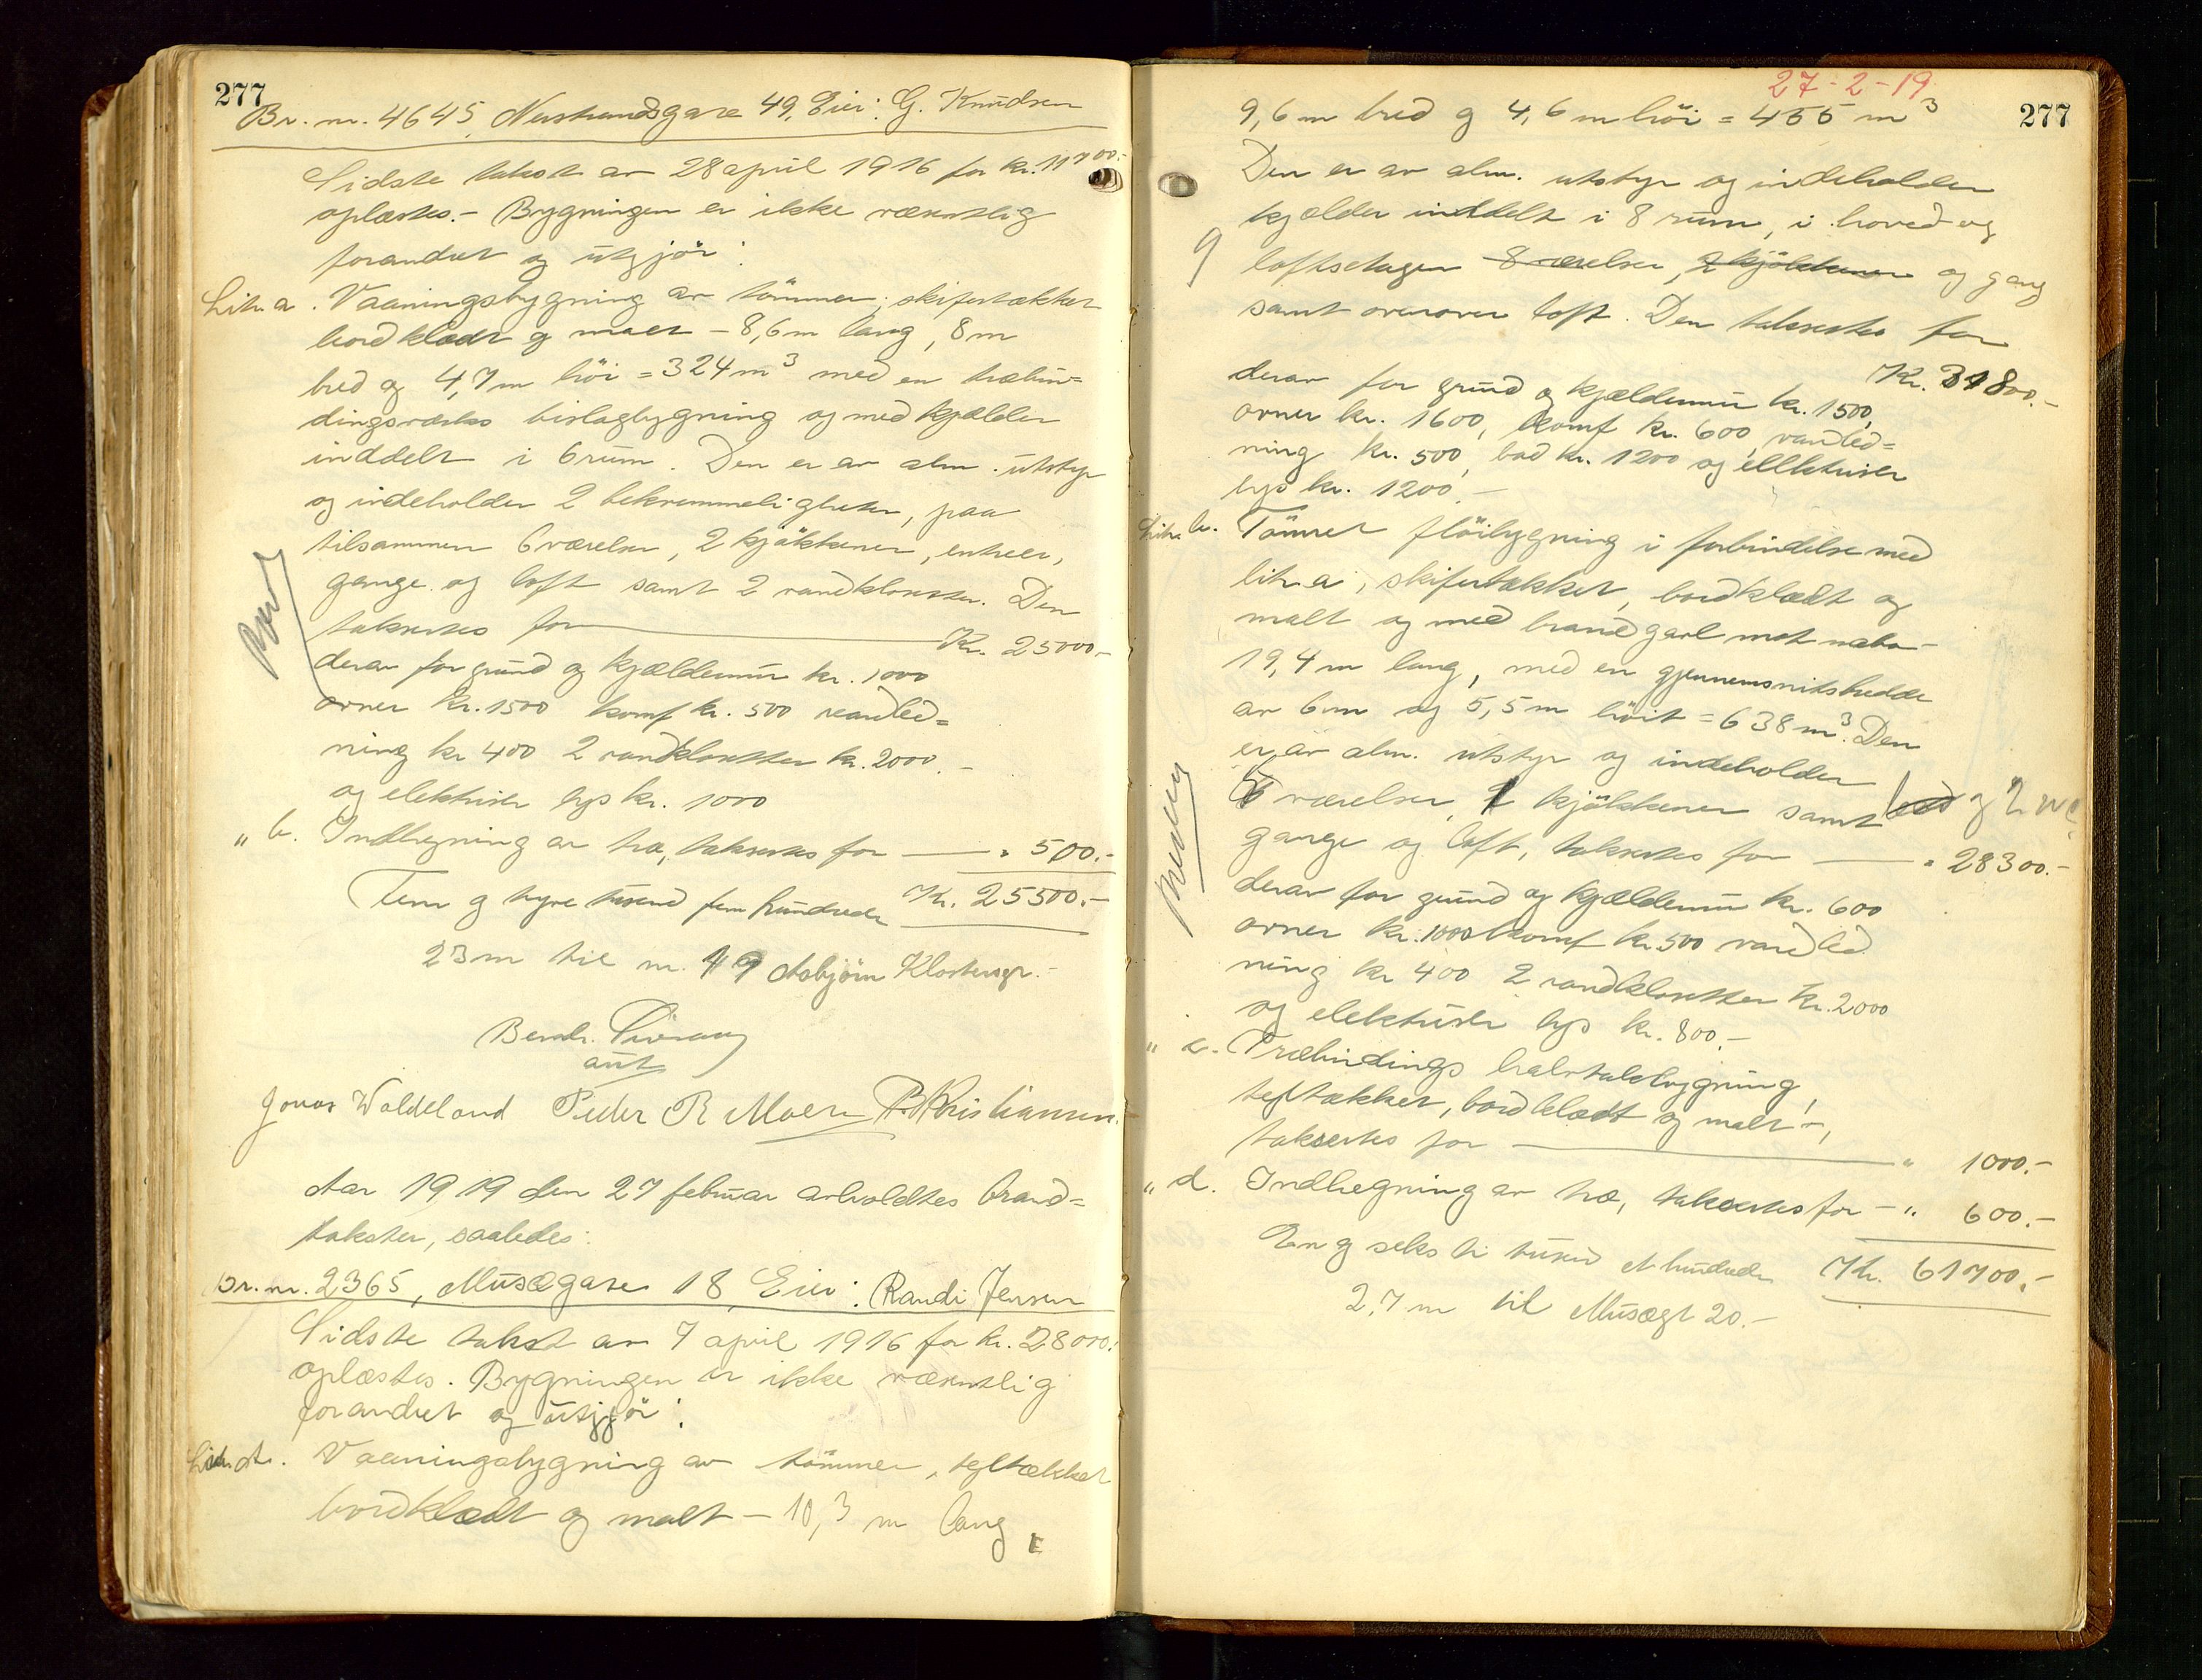 277
Br. nr. 4645, Nustrandsgare 49, Eier: G. Knudsen
Sidste takst av 28 april 1916 for kr. 11700.-
oplæstes.- Bygningen er ikke væsentlig
forandret og utgjör:
Litr. a. Vaaningsbygning av tömmer, skifertækket
bordklædt og malt - 8,6 m lang, 8 m
bred og 4,7 m höi = 324 m³ med en træbin=
dingsværks bislagbygning og med kjælder
inddelt i 6 rum. Den er av alm. utstyr
og indeholder 2 bekvemmeligheter, paa
tilsammen 6 værelser, 2 kjökkener, entreer,
gange og loft samt 2 vandklosetter. Den
taksertes for Kr. 25000.-
derav for grund og kjældermur kr. 1000
ovner kr. 1500 komf kr. 500 vandled=
ning kr 400 2 vandklosetter kr. 2000.-
og elektrisk lys kr. 1000
" b. Indhegning av træ, taksertes for " 500.-
Fem og tyve tusend fem hundrede Kr. 25500.-
23 m til nr. 49 Asbjörn Klostersgt.-
Bernh.
aut
Jonas Waldeland Peder R Moen B Kristiansen.
Aar 1919 den 27 februar avholdtes brand=
takster, saaledes:
Br. nr. 2365, Musægare 18, Eier: Randi Jensen
Sidste takst av 7 april 1916 for kr. 28000.-
oplæstes. Bygningen er ikke væsentlig
forandret og utgjör:
Litr. a. Vaaningsbygning av tömmer, tegltækket
bordklædt og malt - 10,3 m lang,
27-2-19
277
9,6 m bred og 4,6 m höi = 455 m³
Den er av alm. utstyr og indeholder
kjælder inddelt i 8 rum, i hoved og
9 loftsetagen 8 værelser, 2 kjökkener og gang
samt ovenover loft. Den taksertes for
Kr. 31800.-
derav for grund og kjældermur kr. 1500,
ovner kr. 1600, komf kr. 600, vandled=
ning kr. 500, bad kr. 1200 og ellektrisk
lys kr. 1200.-
Litr. b. Tömret flöibygning i forbindelse med
litr. a, skifertækket, bordklædt og
malt og med brandgavl mot nabo-
19,4 m lang, med en gjennemsnitsbredde
av 6 m og 5,5 m höit = 638 m³. Den
er av alm. utstyr og indeholder
værelser, 1 kjökkener samt bad og 2 WC
gange og loft, taksertes for " 28300.-
derav for grund og kjældermur kr. 600
ovner kr. 1000 komf kr. 500 vandled
ning kr 400 2 vandklosetter kr. 2000
og elektrisk lys kr. 800.-
" c. Træbindings halvtakbygning,
tegltækket, bordklædt og malt -,
taksertes for " 1000.-
" d. Indhegning av træ, taksertes for - " 600.-
En og seksti tusend et hundrede Kr. 61700.-
2,7 m til Musægt 20.-